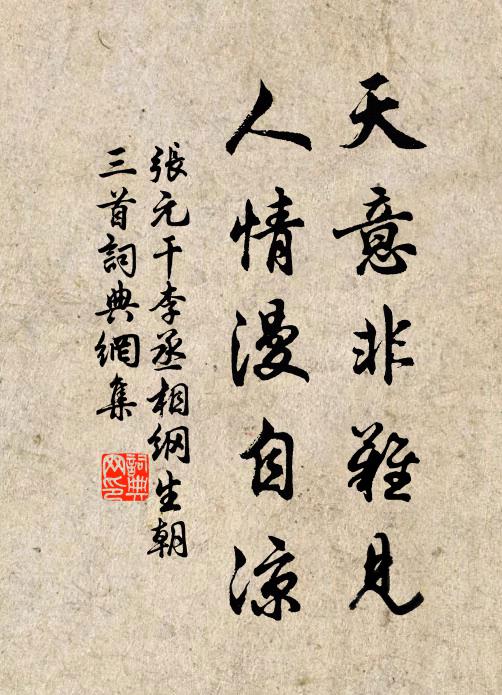 天意非難見
人情漫自凉
張元干李丞相纲生朝
三首詞典網集
詞典网印